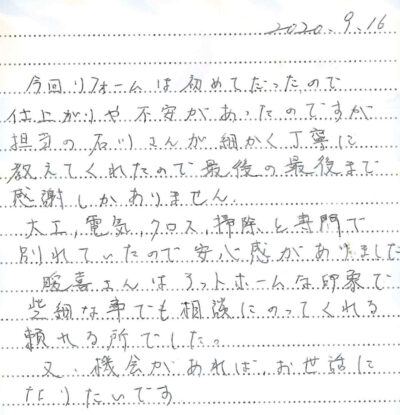 2020.9.16
今回リフォームは初めてだったので
仕上がりや不安があったのですが
担当の石川さんが細かく丁寧に
教えてくれたので最後の最後まで
感謝しかありません.
大工,電気,クロス,掃除と専門で
別れていたので安心感がありました
暖喜さんはアットホームな印象で
些細な事でも相談にのってくれる
頼れる所でした。
又、機会があれば、お世話に
なりたいです